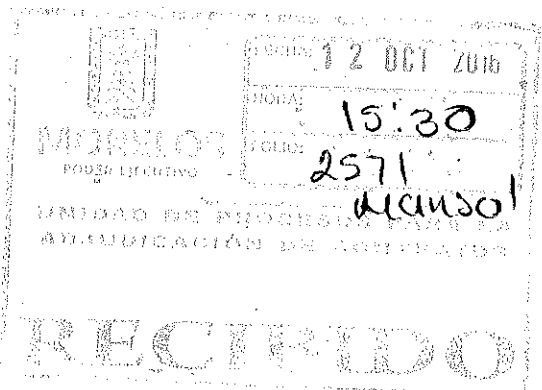 FECHA: 12 OCT 2016
HORA: 15:30
MORELOS
PODER EJECUTIVO
FOLIO: 2571
UNIDAD DE PROCESOS PARA LA
ADJUDICACIÓN DE CONTRATOS
RECIBIDO